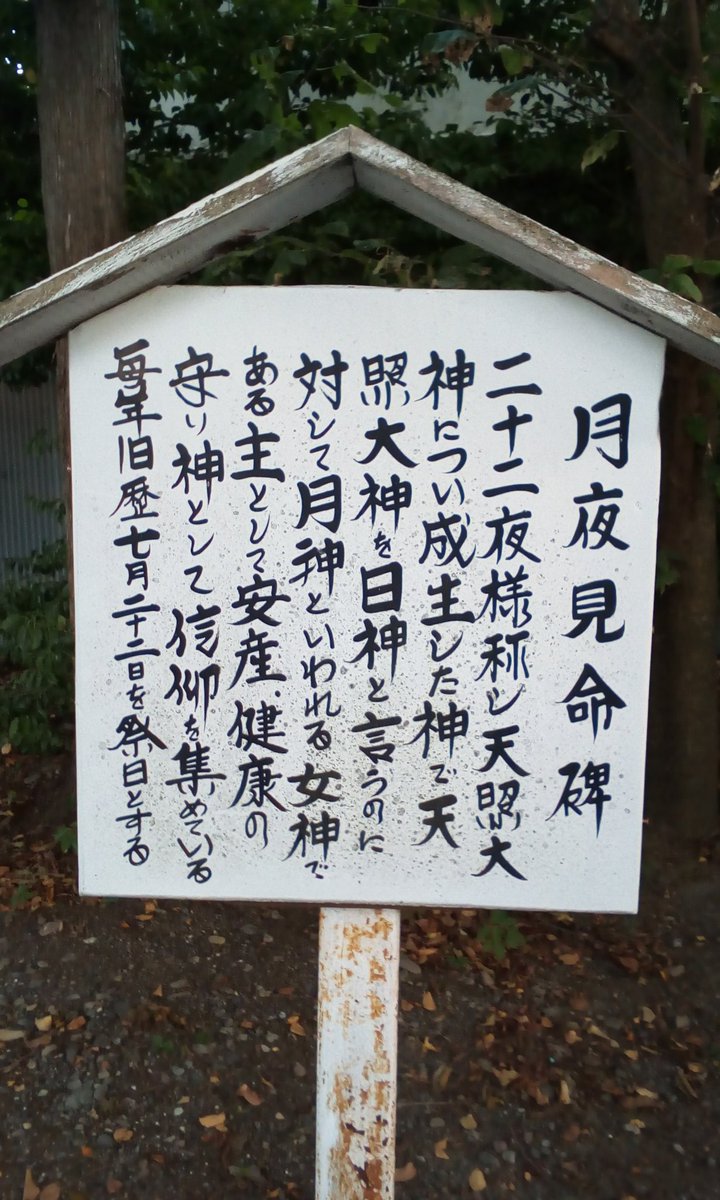 月夜見命碑
二十二夜様称し天照大
神につい成主した神で天
照大神を日神と言うのに
対して月神といわれる女神で
ある主として安産、健康の
守り神として信仰を集めている
毎年旧歴七月二十二日を祭日とする